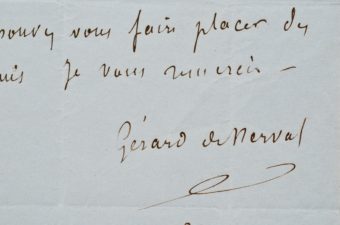 pouvez vous faire placer des
je vous remercie –
Gérard de Nerval